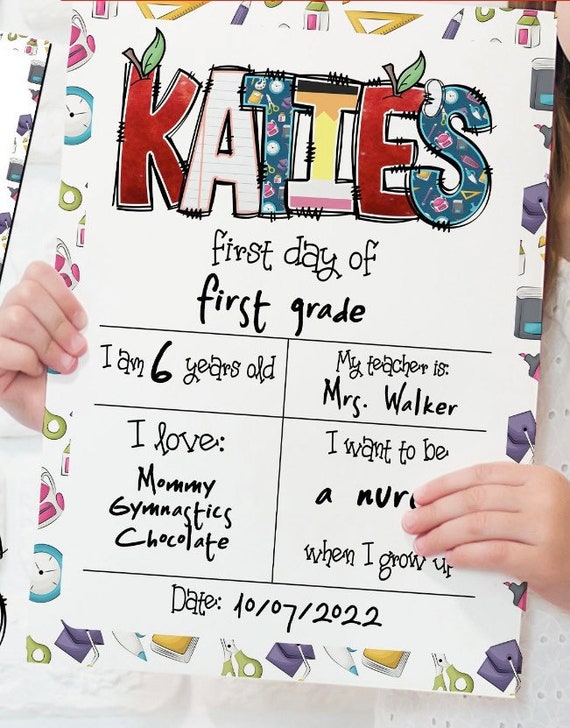 KATIE'S
first day of
first grade
I am 6 years old
My teacher is:
Mrs. Walker
I love:
Mommy
Gymnastics
Chocolate
I want to be
a
when I grow
Date: 10/07/2022